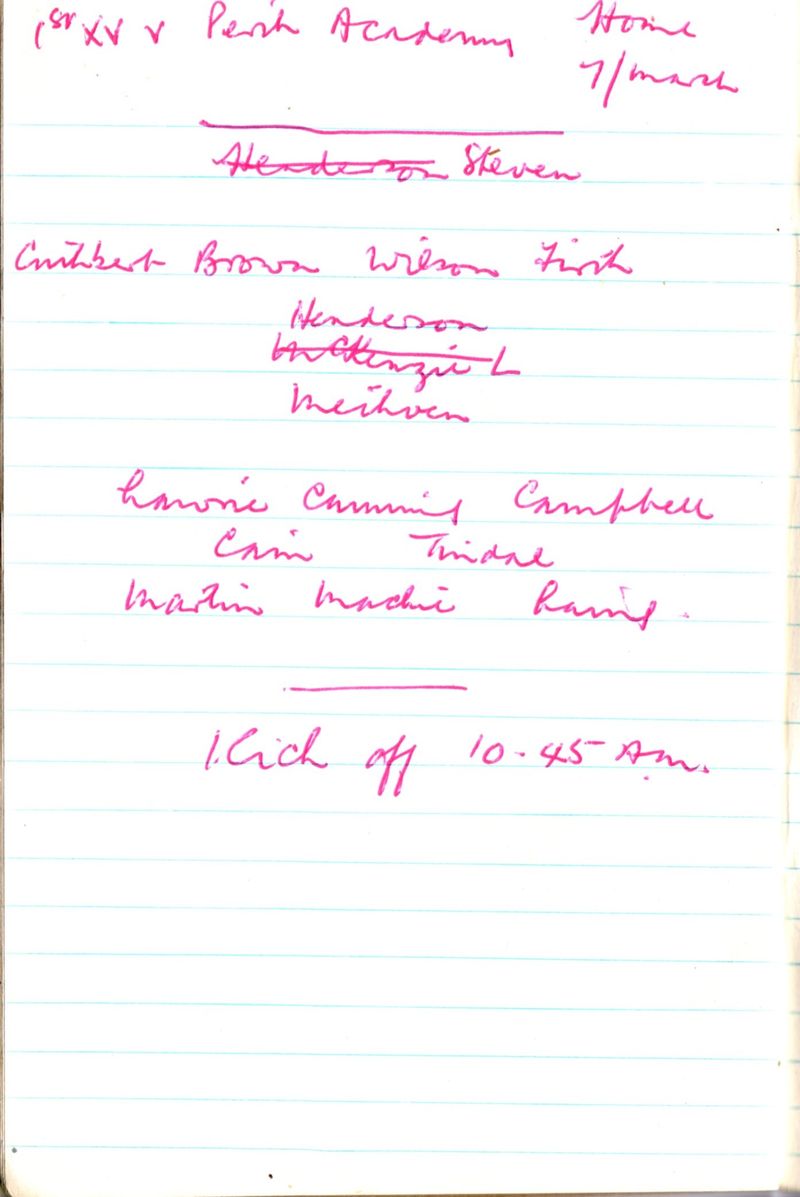 1st XV v Perth Academy Home
7/March
Henderson Steven
Cuthbert Brown Wilson Firth
Henderson
McKenzie L
Methven
Lawrie Cumming Campbell
Cain Tindal
Martin Mackie Laing.
Kick off 10-45 A.m.